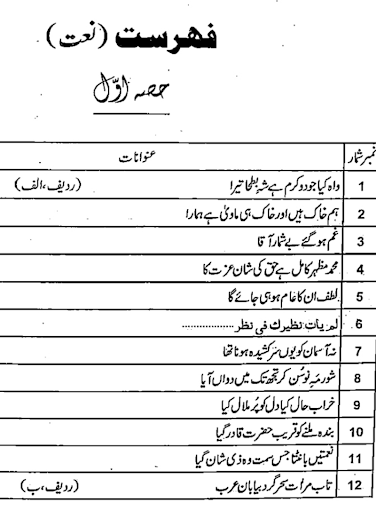 فہرست (نعت)
حصہ اوّل
نمبر شمار عنوانات
1 واہ کیا جود و کرم ہے شہِ بطحا تیرا (ردیف، الف)
2 ہم خاک ہیں اور خاک ہی ماویٰ ہے ہمارا
3 غم ہو گئے بے شمار آقا
4 محمد مظہر کامل ہے حق کی شان عزت کا
5 لطف ان کا عام ہو ہی جائے گا
6 لم یات نظیرک فی نظر ..................
7 نہ آسمان کو یوں سرکشیدہ ہونا تھا
8 شور مہِ نو سن کر تجھ تک میں دواں آیا
9 خراب حال کیا دل کو پُر ملال کیا
10 بندہ ملنے کو قریب حضرت قادر گیا
11 نعمتیں بانٹتا جس سمت وہ ذی شان گیا
12 تاب مرات سحر گرد بیابان عرب (ردیف، ب)